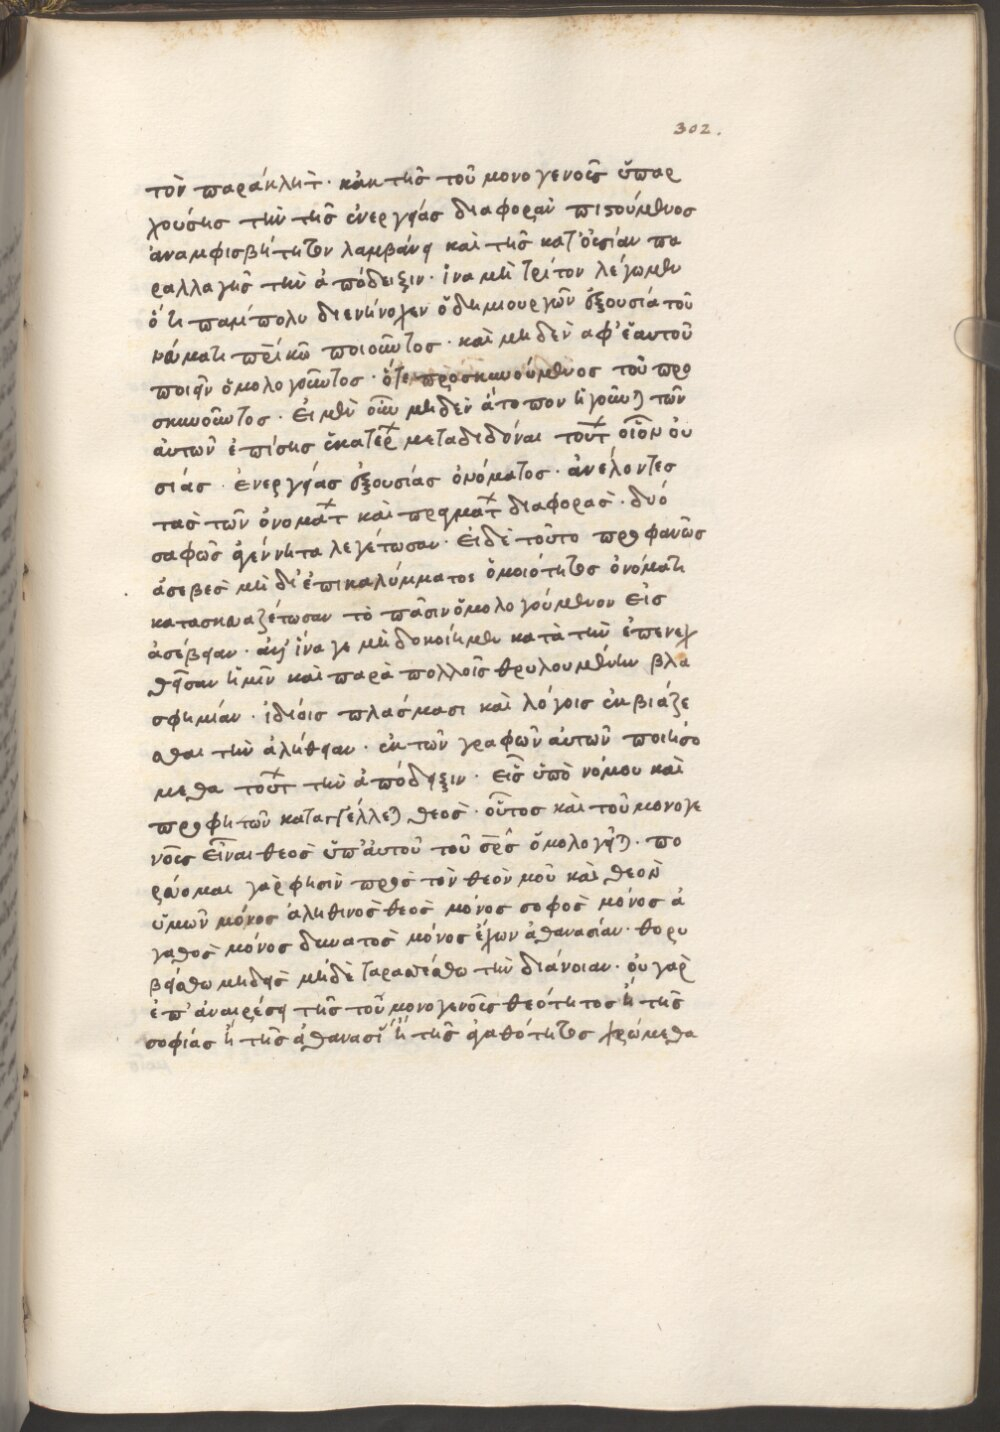 302.
τὸν παράκλητ· κἀκ τῆς τοῦ μονογενοῦς ὑπαρ
χούσης τὴν τῆς ἐνεργείας διαφορὰν πιστούμενος
ἀναμφισβήτητον λαμβάνει καὶ τῆς κατ' οὐσίαν πα
ραλλαγῆς τὴν ἀπόδειξιν· ἵνα μὴ τρίτον λέγωμεν
ὅτι παμπολυ διενήνοχεν ὁ δημιουργῶν ἐξουσία τοῦ
νεύματι πρικῶ ποιοῦντος· καὶ μηδὲν ἀφ' ἑαυτοῦ
ποιεῖν ὁμολογοῦντος· ὅτε προσκυνούμενος τοῦ προ
σκυνοῦντος· Εἰ μὲν οὖν μηδὲν ἄτοπον ἡγοῦνται τῶν
αὐτῶν ἐπίσης ἑκατέρ μεταδιδόναι τούτ οἷον οὐ
σίας· ἐνεργείας ἐξουσίας ὀνόματος· ἀνελόντες
τὰς τῶν ὀνομάτ καὶ πραγμάτ διαφορὰς· δυό
σαφῶς ἀγέννητα λεγέτωσαν· Εἰ δὲ τοῦτο προφανῶς
ἀσεβὲς μὴ δι' ἐπικαλύμματος ὁμοιότητος ὀνόματι
κατασκευαζέτωσαν τὸ πᾶσιν ὁμολογούμενον εἰς
ἀσέβειαν· ἀλλ' ἵνα γε μὴ δοκοίημεν κατὰ τὴν ἐπενεχ
θεῖσαν ἡμῖν καὶ παρὰ πολλοῖς θρυλουμένην βλα
σφημίαν· ἰδίοις πλάσμασι καὶ λόγοις ἐκβιάζε
σθαι τὴν ἀλήθειαν· ἐκ τῶν γραφῶν αὐτῶν ποιησό
μεθα τούτ τὴν ἀπόδειξιν· Εἷς ὑπὸ νόμου καὶ
προφητῶν καταγγέλλεται θεὸς· οὗτος καὶ τοῦ μονογε
νοῦς εἶναι θεὸς ὑπ' αὐτοῦ τοῦ σρς ὁμολογεῖται· πο
ρεύομαι γάρ φησὶν πρὸς τὸν θεόν μοῦ καὶ θεὸν
ὑμῶν μόνος ἀληθινὸς θεὸς μόνος σοφὸς μόνος ἀ
γαθὸς μόνος δυνατὸς μόνος ἔχων ἀθανασίαν· θορυ
βείσθω μηδεὶς μηδὲ ταραττέσθω τὴν διάνοιαν· οὐ γὰρ
ἐπ' ἀναιρέσει τῆς τοῦ μονογενοῦς θεότητος ἢ τῆς
σοφίας ἢ τῆς ἀθανασί ἢ τῆς ἀγαθότητος χρώμεθα